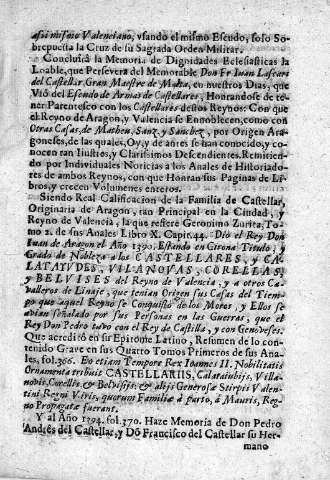 assi mismo Valenciano, vsando el mismo Escudo, solo Sobrepuesta la Cruz de su Sagrada Orden Militar.
Concluirà la Memoria de Dignidades Eclesiasticas la
Loable, que Persevera del Memorable Don Fr Iuan Lascari
del Castellar Gran Maestre de Malta, en nuestros Dias, que
Vsò del Escudo de Armas de Castellares, Honrandose de tener Parentesco con los Castellares destos Reynos: Con que
el Reyno de Aragon, y Valencia se Ennoblecen, como con
Otras Casas, de Matheu, Sanz, y Sanchez, por Origen Aragoneses, de las quales, Oy, y de antes se han conocido, y conocen tan Ilustres, y Clarissimos Descendientes. Remitiendo por Individuales Noticias a los Anales de Historiadores de ambos Reynos, con que Honran sus Paginas de Libros, y crecen Volumenes enteros.
Siendo Real Calificacion de la Familia de Castellar,
Originaria de Aragon, tan Principal en la Ciudad, y
Reyno de Valencia, la que refiere Geronimo Zurita, Tomo 2. de sus Anales Libro X. Capit. 44. Diò el Rey Don
Iuan de Aragon el Año 1390. Estando en Girona Titulo, y
Grado de Nobleza a los CASTELLARES, y CALATAYVDES, VILANOVAS, CORELLAS,
y BELVISES del Reyno de Valencia, y a otros Cavalleros de Linaje, que tenian Origen sus Casas del Tiempo que aquel Reyno se Conquistò de los Moros, y Ellos se
avian señalado por sus Personas en las Guerras, que el
Rey Don Pedro tuvo con el Rey de Castilla, y con Genoveses.
Que acreditò en su Epitome Latino, Resumen de lo contenido Grave en sus Quatro Tomos Primeros de sus Anales, fol. 366. Eo etiam Tempore Rex Ioannes II. Nobilitatis
Ornamenta tribuis CASTELLARIIS, Calataiubijs, Villanovis, Corellis, & Belvisijs: & alijs Generosæ Stirpis Valentini Regni Viris, quorum Familiæ à parto, à Mauris, Regno Propagatæ fuerant.
Y al Año 1394. fol. 370. Haze Memoria de Don Pedro
Andrès del Castellar, y Dō Francisco del Castellar su Hermano